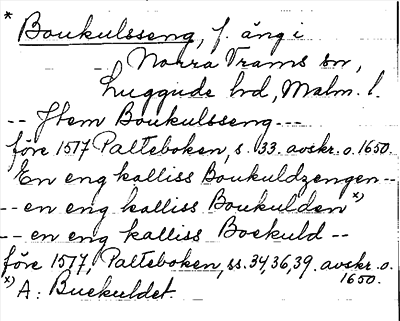 * Boukulsseng, f. äng i
Norra Vrams sn,
Luggude hd, Malm. l.
-- Jtem Boukulsseng ---
före 1517 Palteboken, s. 33. avskr. o. 1650.
En eng kalliss Boukuldzengen --
-- en eng kalliss Boukulden x)
-- en eng kalliss Boekuld --
före 1517, Palteboken, ss. 34, 36, 39. avskr. o.
1650.
x) A: Buekuldet.